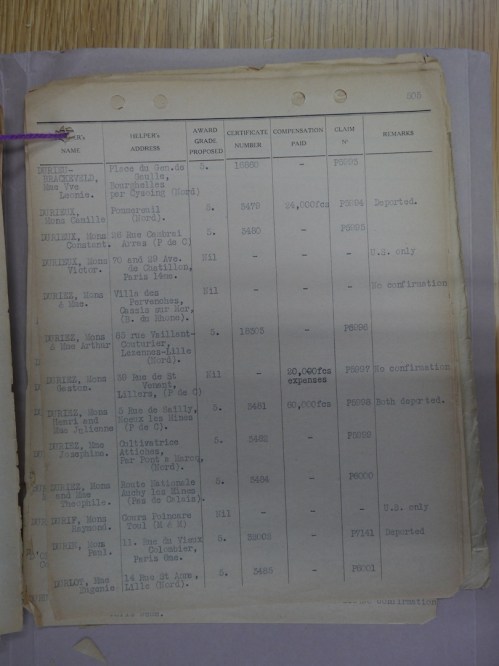 503
NAME
HELPER's
ADDRESS
AWARD
GRADE
PROPOSED
CERTIFICATE
NUMBER
COMPENSATION
PAID
CLAIM
Nº
REMARKS
DURIEU-
BRACKEVELD,
Mme Vve
Leonie.
Place du Gen.de
Gaulle,
Bourghelles
par Cysoing (Nord)
5.
-
DURIEUX,
Mons Camille
Pommereuil
(Nord).
5.
5479
24,000fcs
P5994
Deported.
DURIEUX, Mons
Constant.
26 Rue Cambrai
Arras (P de C)
5.
5480
-
P5995
DURIEUX, Mons
Victor.
70 and 29 Ave.
de Chatillon,
Paris 14em.
Nil
-
-
U.S. only
DURIEZ, Mons
& Mme.
Ville des
Pervenches,
Cassis sur Mer,
(B. du Rhone).
Nil
-
-
No confirmation
DURIEZ, Mons
& Mme Arthur
83 rue Vaillant-
Couturier,
Lezennes-Lille
(Nord).
5.
-
P5996
DURIEZ, Mons
Gaston.
39 Rue de St
Venant,
Lillers, (P de C)
Nil
-
20,000fcs
expenses
P5997
No confirmation
DURIEZ, Mons
Henri and
Mme Julienne
5 Rue de Sailly,
Noeux les Mines
(P de C).
5.
5481
60,000fcs
P5998
Both deported.
DURIEZ, Mme
Josephine.
Cultivatrice
Attiches,
Par Pont a Marcq,
(Nord).
5.
5482
-
P5999
DURIEZ, Mons
and Mme
Theophile.
Route Nationale
Auchy les Mines
(Pas de Calais).
5.
5484
-
P6000
DURIF, Mons
Raymond.
Cours Poincare
Toul (M & M)
Nil
-
-
-
U.S. only
DURIN, Mons
Paul.
11. Rue du Vieux
Colombier,
Paris 6me.
5.
-
Deported
DURLOT, Mme
Eugenie
14 Rue St Acms,
Lille (Nord).
5.
5485
-
P6001
confirmation